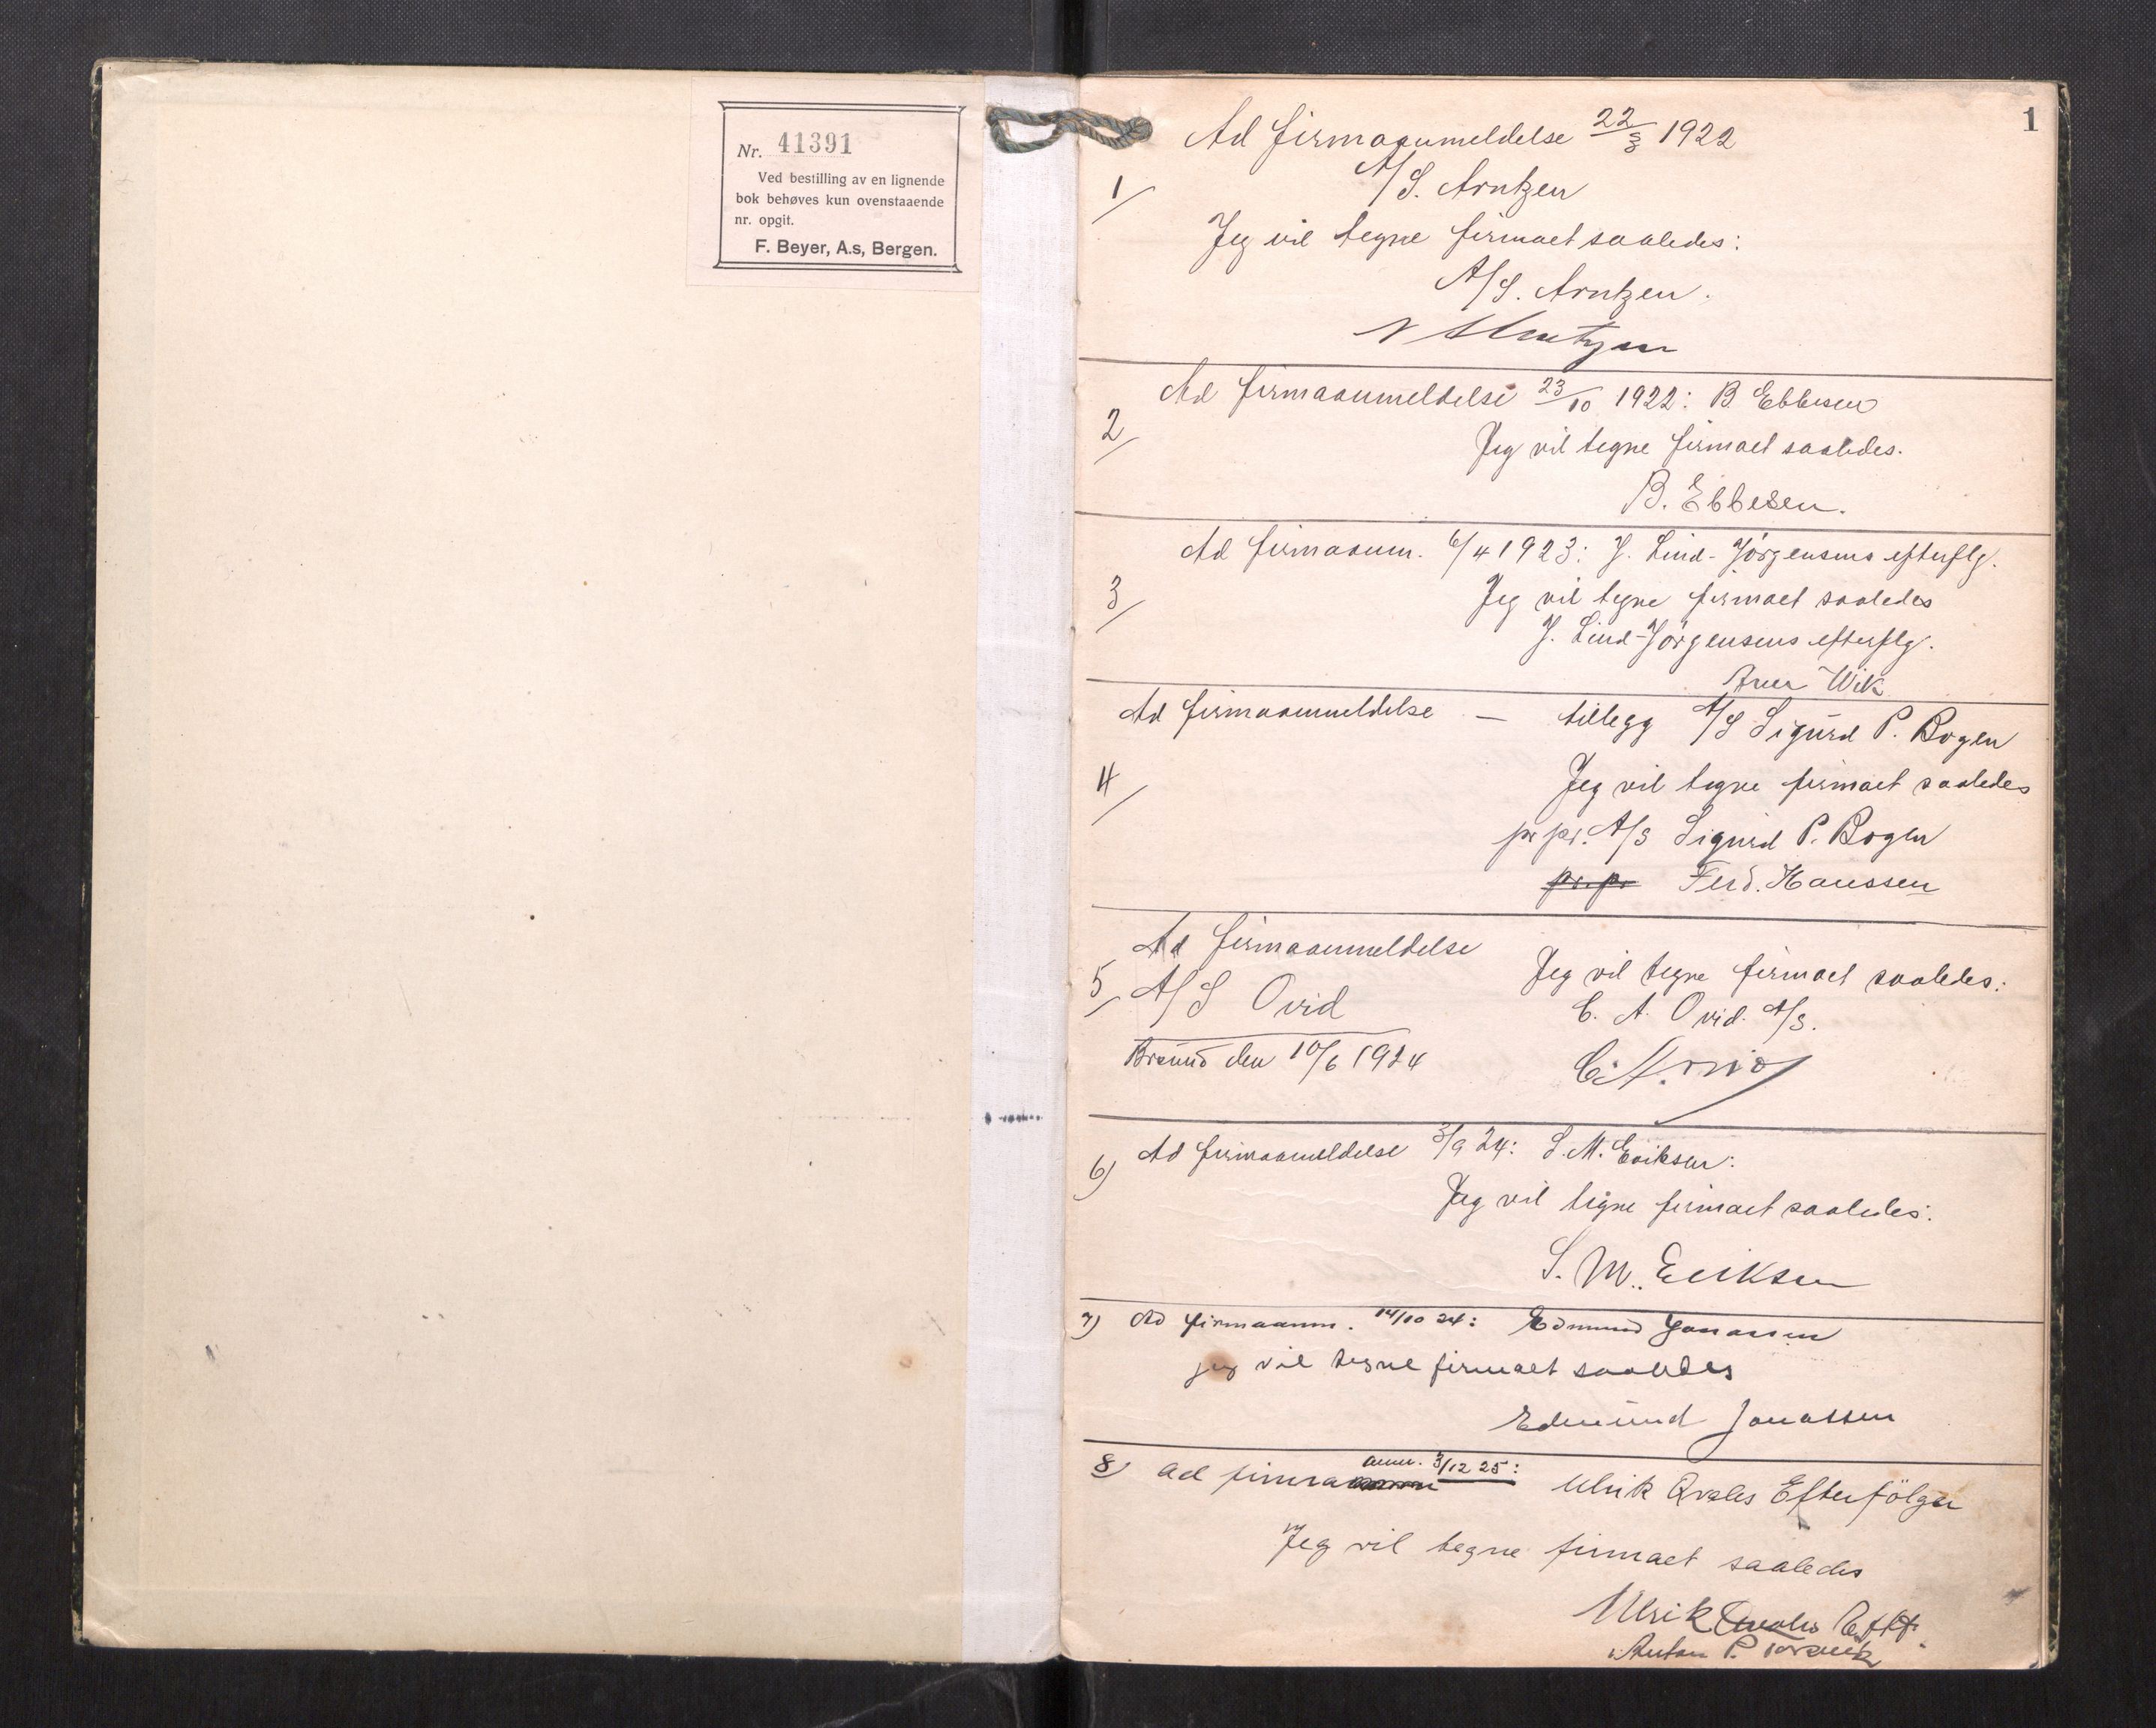 Nr. 41391
Ved bestilling av en lignende
bok behøves kun ovenstaaende
nr. opgit.
F. Beyer, A.s, Bergen.
1
Ad firmaanmeldelse 22/3 1922
1/ A/S. Arntzen
Jeg vil tegne firmaet saaledes:
A/S. Arntzen.
Arntzen
Ad firmaanmeldelse 23/10 1922: B. Ebbesen
2/
Jeg vil tegne firmaet saaledes.
B. Ebbesen.
Ad firmaanm. 6/4 1923: J. Lind-Jörgensens efterflg.
3/ Jeg vil tegne firmaet saaledes
J. Lind-Jörgensens efterflg.
Wik
Ad firmaanmeldelse — tillegg A/S Sigurd P. Bogen
4/ Jeg vil tegne firmaet saaledes
pr pr. A/S Sigurd P. Bogen
pr. pr Ferd. Hanssen
Ad firmaanmeldelse
Jeg vil tegne firmaet saaledes:
5/ A/S Ovid
C. A. Ovid. A/S.
Brønnø den 10/6 1924
C. A. Ovid
6) Ad firmaanmeldelse 3/9 24: S. M. Eriksen:
Jeg vil tegne firmaet saaledes:
S. M. Eriksen
7) Ad firmaanm. 14/10 24: Edmund Jonassen
jeg vil tegne firmaet saaledes
Edmund Jonassen
anm. 3/12 25:
8) Ad firma Ulrik Qvales Efterfölger
Jeg vil tegne firmaet saaledes
Ulrik Qvales Eftf.
Anton P.